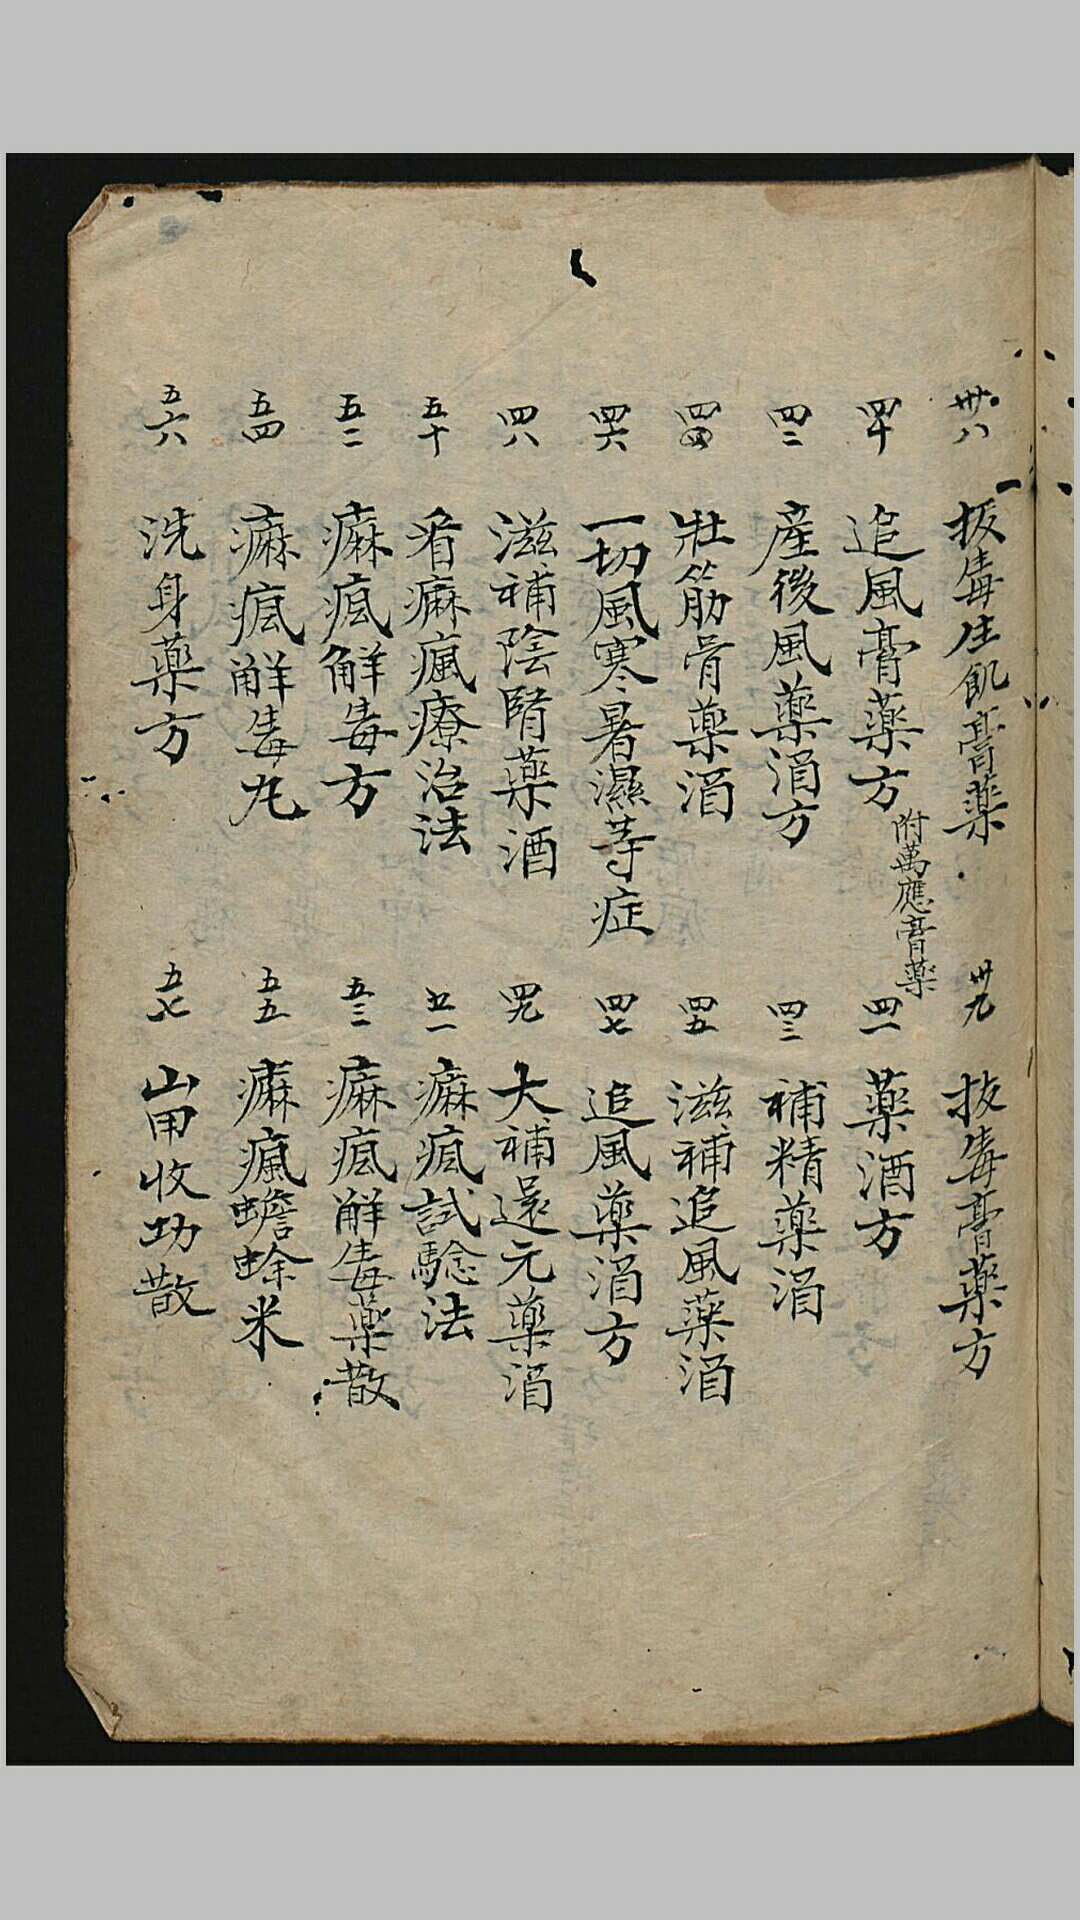 卅八 拔毒生飢膏藥
卅九 拔毒膏藥方
四十 追風膏藥方 附萬應膏藥
四一 藥酒方
四二 產後風藥酒方
四三 補精藥酒
四四 壯筋骨藥酒
四五 滋補追風藥酒
四六 一切風寒暑濕等症
四七 追風藥酒方
四八 滋補陰腎藥酒
四九 大補還元藥酒
五十 看痲瘋療治法
五一 痲瘋試驗法
五二 痲瘋解毒方
五三 痲瘋解毒藥散
五四 痲瘋解毒丸
五五 痲瘋蟾蜍米
五六 洗身藥方
五七 山甲收功散